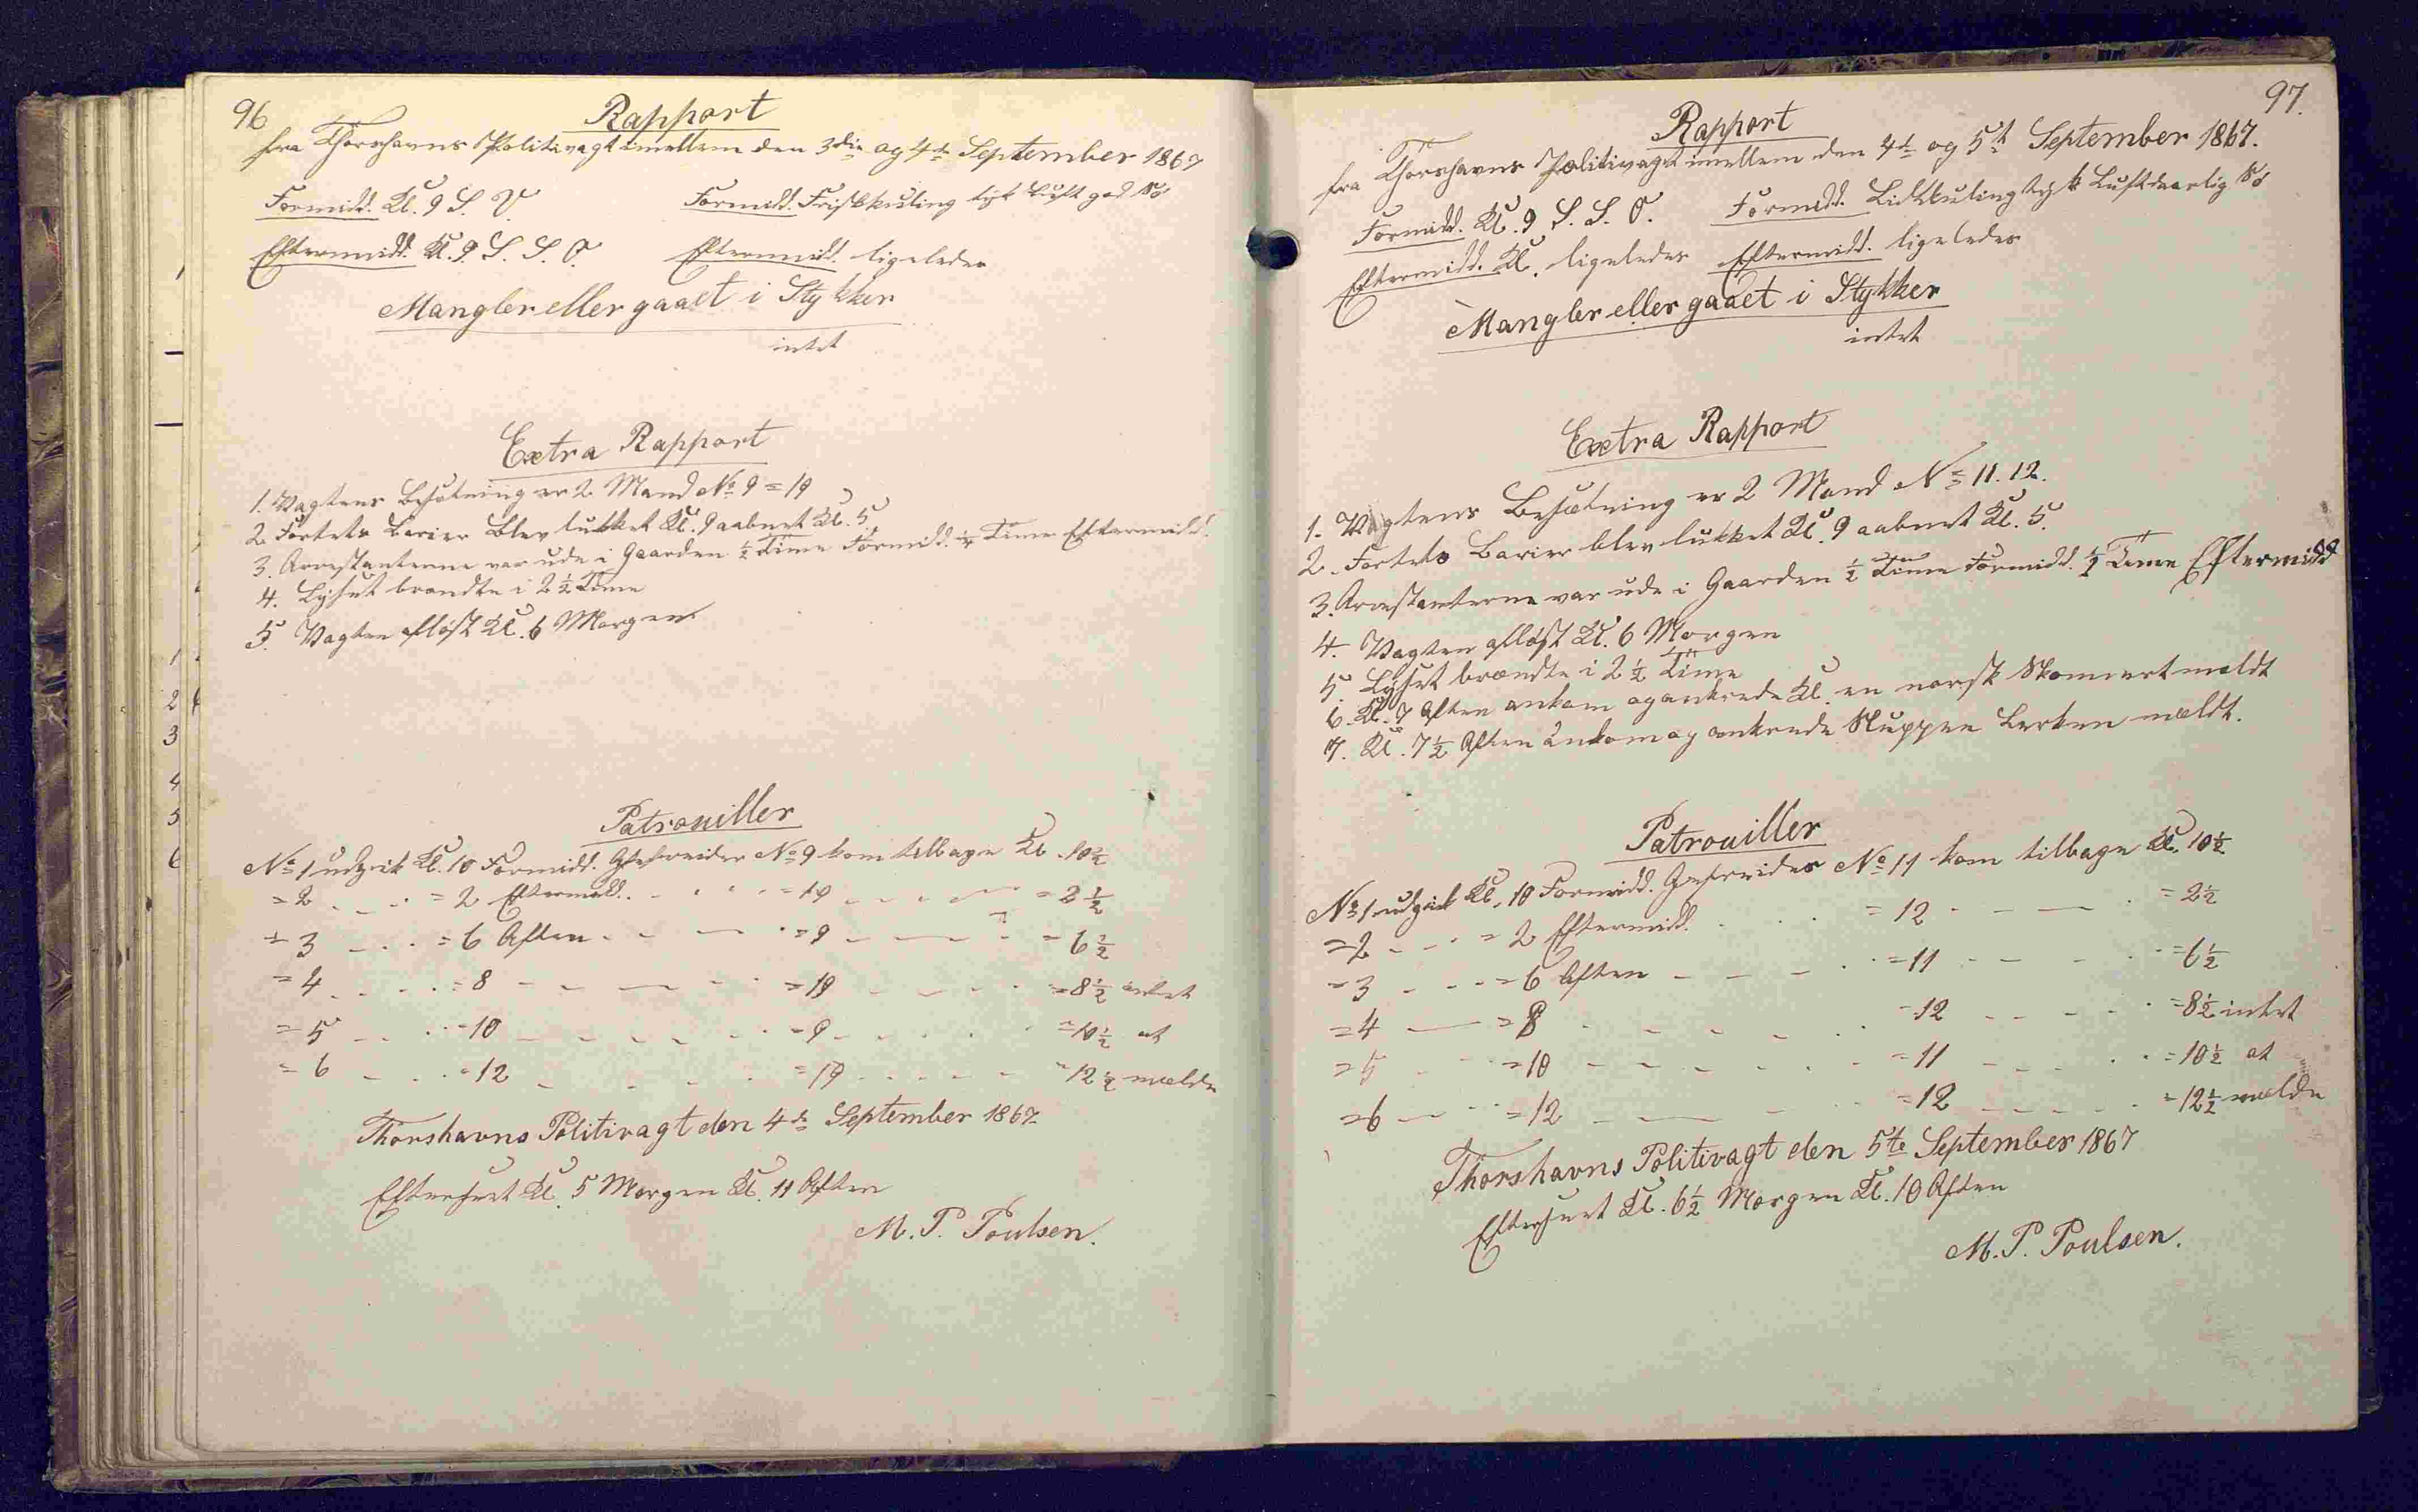 96
Rapport
fra Thorshavns Politivagt imellem den 3die og 4de September 1867
Formidd. Kl. 9 S. V. Formidd. Friskkuling tyk Luft god Sö
Eftermidd. Kl. 9. S. S. O. Eftermidd. ligeledes
Mangler eller gaaet i Stykker
intet
Extra Rapport
1. Vagtens Besætning er 2 Mand No 9 = 19
2. Fortets Barier blev lukket Kl. 9 aabnet Kl. 5.
3. Arrestanterne var ude i Gaarden ½ Time Formidd. ½ Time Eftermidd.
4. Lyset brændte i 2½ Time
5. Vagten aflöst Kl. 6 Morgen
Patrouiller
No 1 udgik Kl. 10 Formidd. Gefreider No 9 kom tilbage Kl. 10½
= 2 = 2 Eftermidd. = 19 = 2½
= 3 = 6 Aften = 9 = 6½
= 4 = 8 = 19 = 8½ intet
= 5 = 10 = 9 = 10½ at
= 6 = 12 = 19 = 12½ melde
Thorshavns Politivagt den 4de September 1867
Efterseet Kl. 5 Morgen Kl. 11 Aften
M. P. Poulsen.
97.
Rapport
fra Thorshavns Politivagt imellem den 4de og 5te September 1867.
Formidd. Kl. 9 S. S. O. Formidd. Lidtkuling tyk Luft daarlig Sö
Eftermidd. Kl. ligeledes Eftermidd. ligeledes
Mangler eller gaaet i Stykker
intet
Extra Rapport
1. Vagtens Besætning er 2 Mand No 11. 12.
2. Fortets Barier blev lukket Kl. 9 aabnet Kl. 5.
3. Arrestanterne var ude i Gaarden ½ Time Formidd. ½ Time Eftermidd
4. Vagten aflöst Kl. 6 Morgen
5. Lyset brændte i 2½ Time
6. Kl. 7 Aften ankom og ankrede Kl. en norsk Skonnert meldt
7. Kl. 7½ Aften ankom og ankrede Sluppen meldt.
Patrouiller
No 1 udgik Kl. 10 Formidd. Gefreider No 11 kom tilbage Kl. 10½
= 2 = 2 Eftermidd. = 12 = 2½
= 3 = 6 Aften = 11 = 6½
= 4 = 8 = 12 = 8½ intet
= 5 = 10 = 11 = 10½ at
= 6 = 12 = 12 = 12½ melde
Thorshavns Politivagt den 5te September 1867
Efterseet Kl. 6½ Morgen Kl. 10 Aften
M. P. Poulsen.